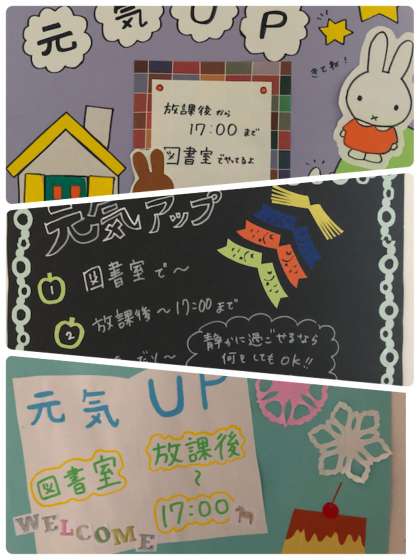 元気UP
きてね!
放課後から
17:00まで
図書室でやってるよ
元気アップ
① 図書室で〜
② 放課後〜17:00まで
静かに過ごせるなら
何をしてもOK!!
元気UP
図書室
放課後
〜
17:00
WELCOME